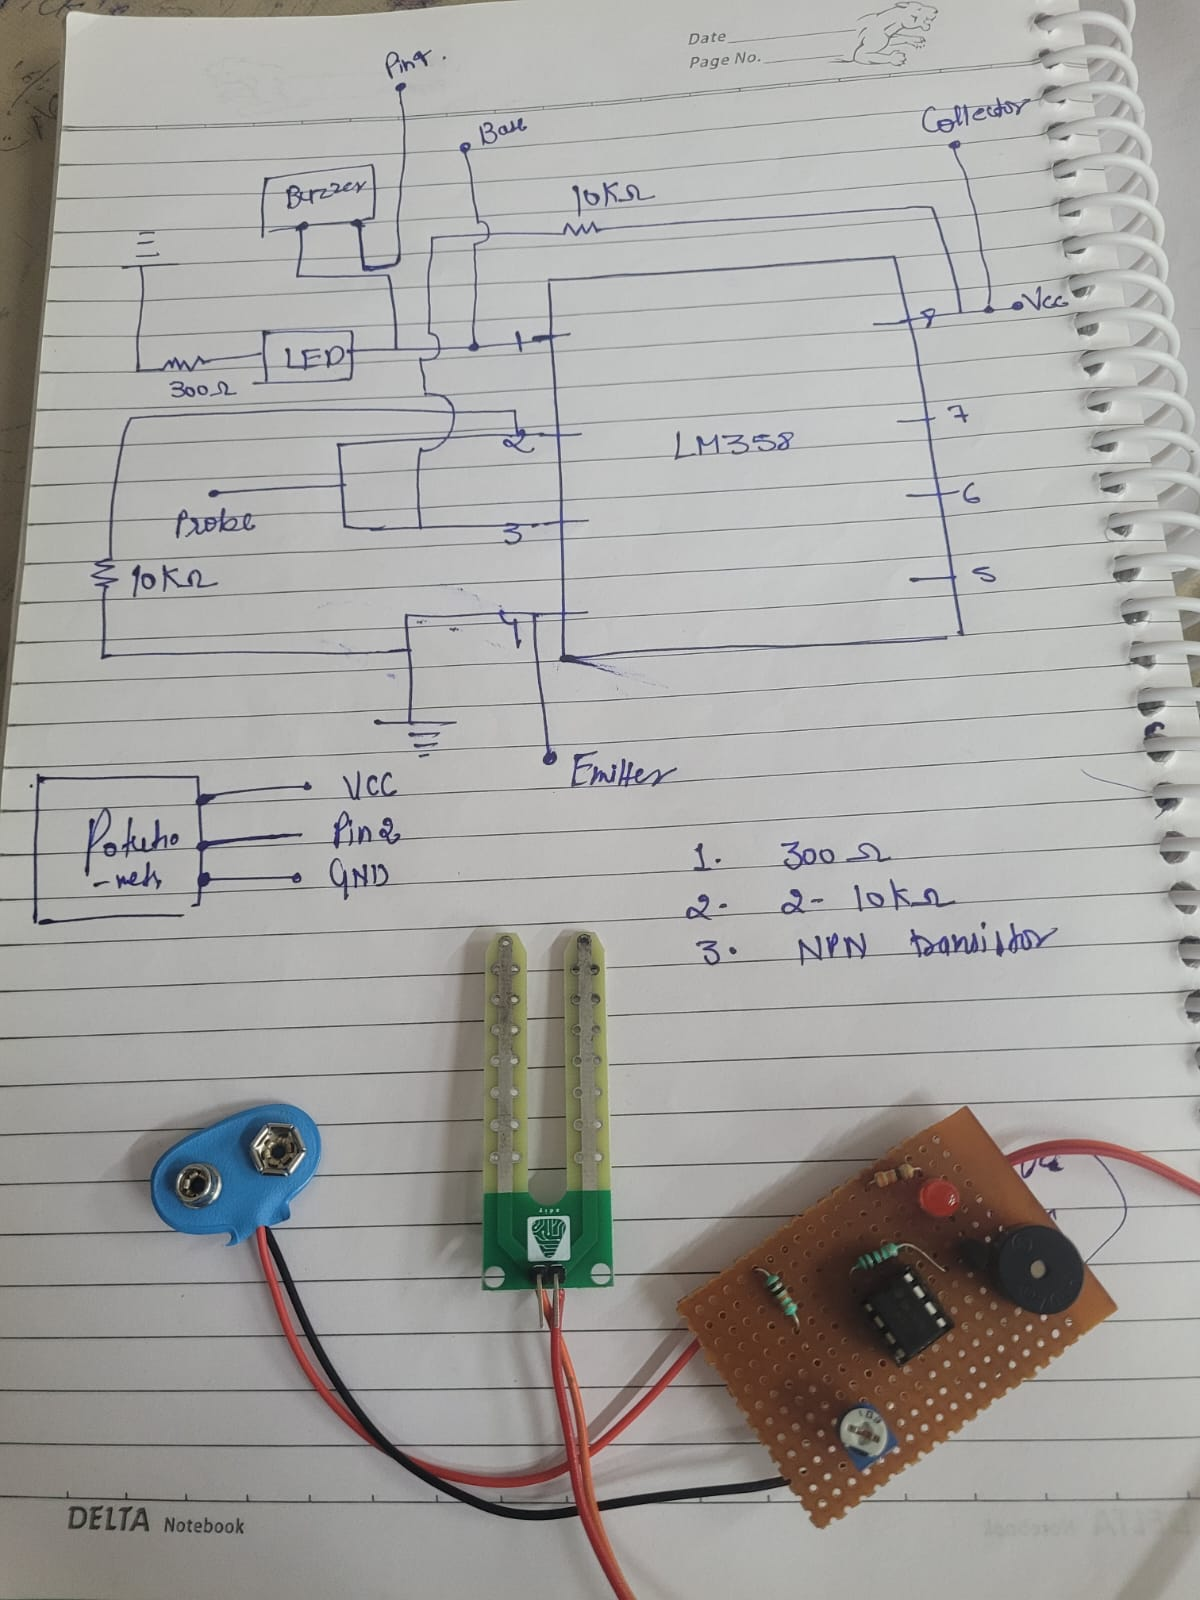 Date
Page No.
Pin4.
Base
Collector
Buzzer
10KΩ
1
8
Vcc
LED
300Ω
2
LM358
7
Probe
3
6
10KΩ
5
4
Emitter
VCC
Potentio
-meter
Pin2
GND
1. 300Ω
2. 2- 10KΩ
3. NPN transistor
DELTA Notebook